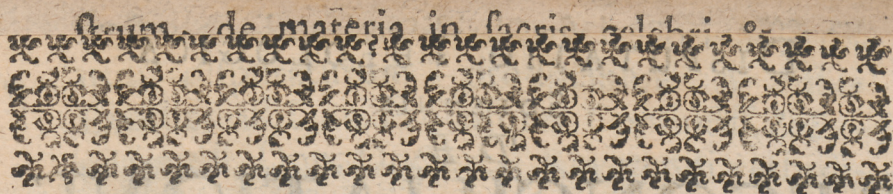 ſtrum, de materia in ſacris celebri &